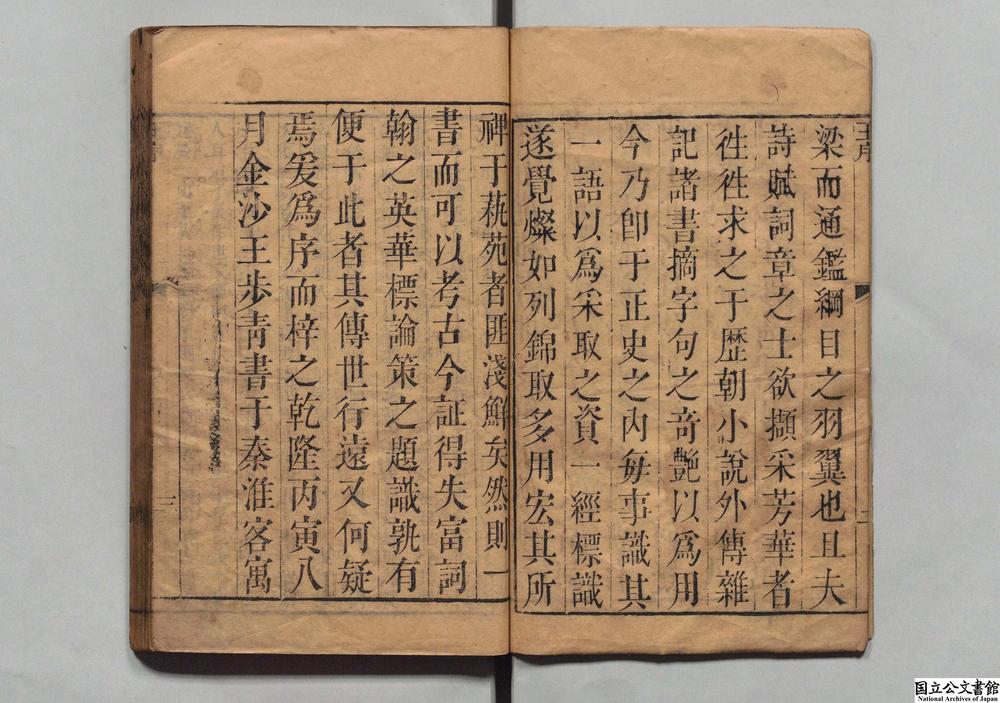 梁而通鑑綱目之羽翼也且夫
詩賦詞章之士欲擷采芳華者
徃徃求之于歴朝小說外傳雜
記諸書摘字句之奇艷以爲用
今乃卽于正史之内每事識其
一語以爲采取之資一經標識
遂覺燦如列錦取多用宏其所
裨于蓺苑者匪淺鮮矣然則一
書而可以考古今証得失富詞
翰之英華標論策之題識孰有
便于此者其傳世行遠又何疑
焉爰爲序而梓之乾隆丙寅八
月金沙王步靑書于秦淮客寓
三
国立公文書館
National Archives of Japan